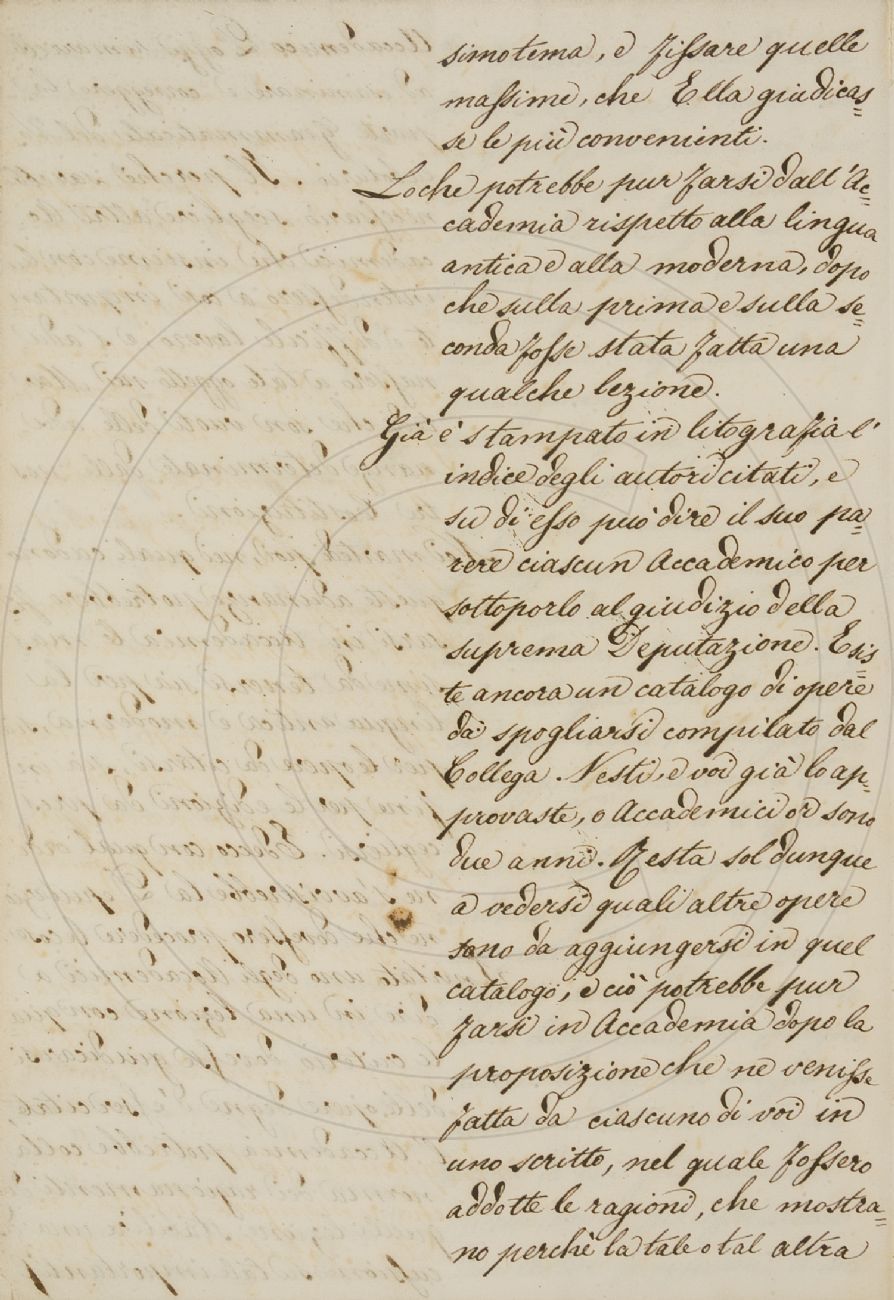 simo tema, e fissare quelle
massime, che Ella giudicas=
se le più convenienti.
Loche potrebbe pur farsi dall'Ac=
cademia rispetto alla lingua
antica e alla moderna, dopo
che sulla prima e sulla se=
conda fosse stata fatta una
qualche lezione.
Già è stampato in litografia l'
indice degli autori citati, e
su di esso può dire il suo pa=
rere ciascun Accademico per
sottoporlo al giudizio della
suprema Deputazione. Esis=
te ancora un catalogo di opere
da spogliarsi compilato dal
Collega Nesti, e voi già lo ap=
provaste, o Accademici or sono
due anni. Resta sol dunque
a vedersi quali altre opere
sono da aggiungersi in quel
catalogo, e ciò potrebbe pur
farsi in Accademia dopo la
proposizione che ne venisse
fatta da ciascuno di voi in
uno scritto, nel quale fossero
addotte le ragioni, che mostra=
no perchè la tale o tal altra